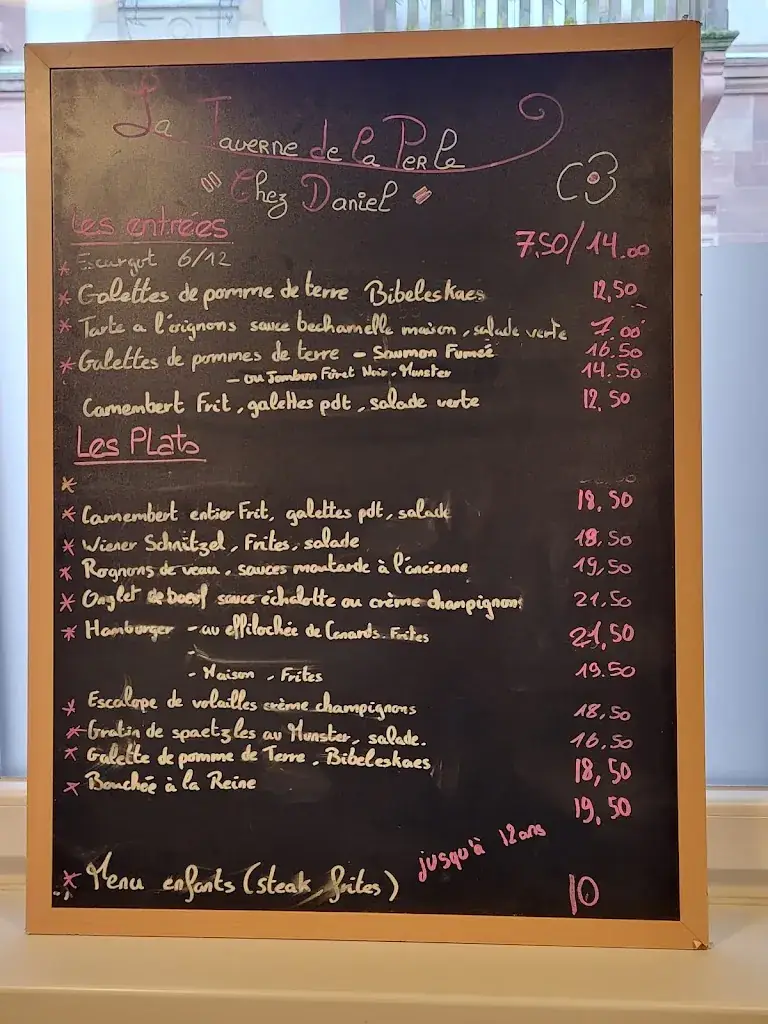 La Taverne de la Perle
Chez Daniel
Les entrées
* Escargot 6/12 7.50/14.00
* Galettes de pomme de terre Bibeleskaes 12,50
* Tarte a l'oignons sauce bechamelle maison, salade verte 7.00
* Galettes de pommes de terre - Saumon Fumée 16.50
- ou Jambon Fôret Noir, Munster 14.50
Camembert Frit, galettes pdt, salade verte 12,50
Les Plats
*
* Camembert entier Frit, galettes pdt, salade 18,50
* Wiener Schnitzel, Frites, salade 18.50
* Rognons de veau, sauces moutarde à l'ancienne 19,50
* Onglet de boeuf sauce échalotte ou crème champignons 21,50
* Hamburger - au effilochée de Canards. Frites 21,50
- Maison , Frites 19.50
* Escalope de volailles crème champignons 18,50
* Gratin de spaetzles au Munster, salade. 16,50
* Galette de pomme de Terre, Bibeleskaes 18,50
* Bouchée à la Reine 19,50
jusqu'à 12 ans
* Menu enfants (steak frites) 10